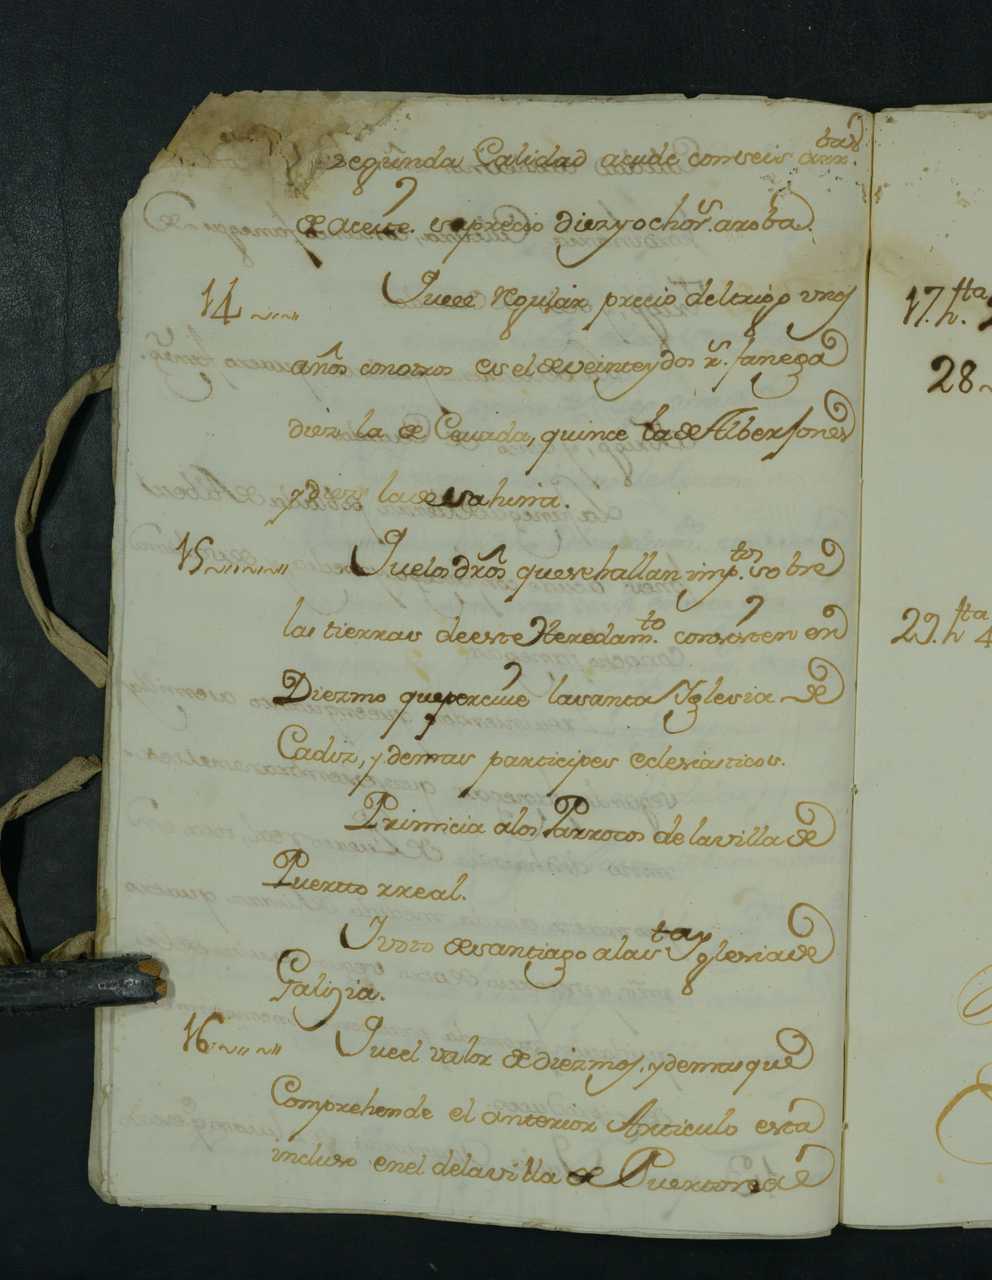 segunda Calidad acude con seis arr.bas
de aceite. su precio diez y ocho rs. arroba.
14 Que el regular precio del trigo unos
años con otros es el de veinte y dos rs. fanega
diez la de Cevada, quince la de Alberjones
y diez la de sahina.
15 Que los dros que se hallan imp.tos sobre
las tierras de este Heredam.to consisten en
Diezmo que percive la santa Yglesia de
Cadiz, y demas participes eclesiasticos.
Primicia a los Parrocos de la villa de
Puertto rreal.
Y voto de santiago a la s.ta Yglesia de
Galizia.
16 Que el valor de diezmos, y demas que
Comprehende el anterior Articulo esta
incluso en el de la villa de Puerto
17. h.ta
28
29. h.ta 4